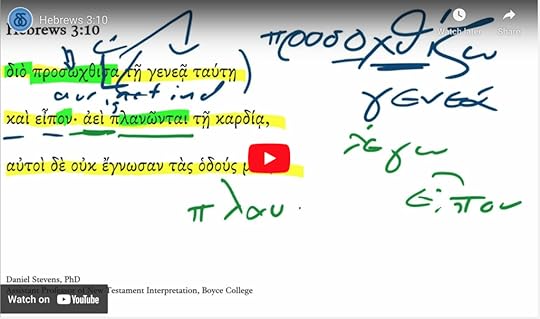 Hebrews 3:10
Watch later
Share
Hebrews 3:10
προσοχθίζω
διὸ προσώχθισα τῇ γενεᾷ ταύτῃ
γενεά
καὶ εἶπον· ἀεὶ πλανῶνται τῇ καρδίᾳ,
λέγω
αὐτοὶ δὲ οὐκ ἔγνωσαν τὰς ὁδούς
εἶπον
πλαν
Daniel Stevens, PhD
Assistant Professor of New Testament Interpretation, Boyce College
Watch on YouTube